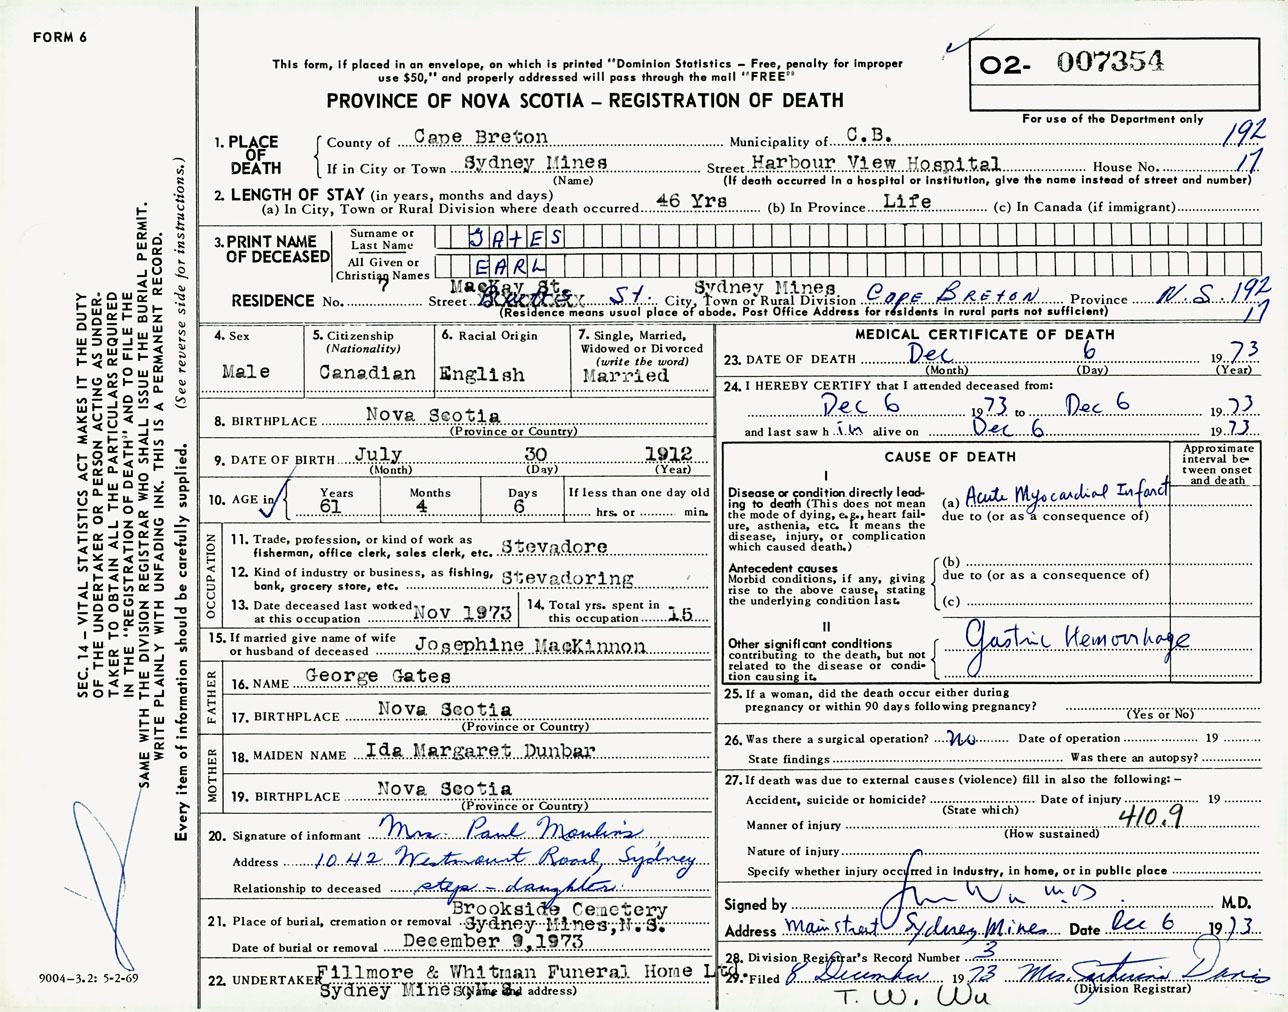 FORM 6
This form, if placed in an envelope, on which is printed "Dominion Statistics – Free, penalty for improper
use $50," and properly addressed will pass through the mail "FREE"
PROVINCE OF NOVA SCOTIA – REGISTRATION OF DEATH
02- 007354
For use of the Department only
192
17
1. PLACE OF DEATH
County of Cape Breton Municipality of C.B.
If in City or Town Sydney Mines Street Harbour View Hospital House No.
(Name) (If death occurred in a hospital or institution, give the name instead of street and number)
2. LENGTH OF STAY (in years, months and days)
(a) In City, Town or Rural Division where death occurred 46 Yrs (b) In Province Life (c) In Canada (if immigrant)
3. PRINT NAME OF DECEASED
Surname or Last Name GATES
All Given or Christian Names EARL
MacKay St. Sydney Mines
RESIDENCE No. 7 Street St. City, Town or Rural Division CAPE BRETON Province N.S. 192
17
(Residence means usual place of abode. Post Office Address for residents in rural parts not sufficient)
4. Sex
Male
5. Citizenship
(Nationality)
Canadian
6. Racial Origin
English
7. Single, Married,
Widowed or Divorced
(write the word)
Married
8. BIRTHPLACE Nova Scotia
(Province or Country)
9. DATE OF BIRTH July 30 1912
(Month) (Day) (Year)
10. AGE in Years Months Days If less than one day old
61 4 6 hrs. or min.
OCCUPATION
11. Trade, profession, or kind of work as
fisherman, office clerk, sales clerk, etc. Stevadore
12. Kind of industry or business, as fishing,
bank, grocery store, etc. Stevadoring
13. Date deceased last worked
at this occupation Nov 1973
14. Total yrs. spent in
this occupation 15
15. If married give name of wife
or husband of deceased Josephine MacKinnon
FATHER
16. NAME George Gates
17. BIRTHPLACE Nova Scotia
(Province or Country)
MOTHER
18. MAIDEN NAME Ida Margaret Dunbar
19. BIRTHPLACE Nova Scotia
(Province or Country)
20. Signature of informant Mrs. Paul Moulins
Address 1042 Westmount Road, Sydney
Relationship to deceased step-daughter.
21. Place of burial, cremation or removal Brookside Cemetery
Sydney Mines, N.S.
Date of burial or removal December 9, 1973
22. UNDERTAKER Fillmore & Whitman Funeral Home Ltd.
Sydney Mines, N.S.
(Name and address)
MEDICAL CERTIFICATE OF DEATH
23. DATE OF DEATH Dec 6 1973
(Month) (Day) (Year)
24. I HEREBY CERTIFY that I attended deceased from:
Dec 6 1973 to Dec 6 1973
and last saw him alive on Dec 6 1973
CAUSE OF DEATH
Approximate
interval be-
tween onset
and death
I
Disease or condition directly lead-
ing to death (This does not mean
the mode of dying, e.g., heart fail-
ure, asthenia, etc. It means the
disease, injury, or complication
which caused death.)
(a) Acute Myocardial Infarct
due to (or as a consequence of)
Antecedent causes
Morbid conditions, if any, giving
rise to the above cause, stating
the underlying condition last.
(b)
due to (or as a consequence of)
(c)
II
Other significant conditions
contributing to the death, but not
related to the disease or condi-
tion causing it.
Gastric Hemorrhage
25. If a woman, did the death occur either during
pregnancy or within 90 days following pregnancy?
(Yes or No)
26. Was there a surgical operation? No Date of operation 19
State findings Was there an autopsy?
27. If death was due to external causes (violence) fill in also the following: –
Accident, suicide or homicide? Date of injury 19
(State which)
Manner of injury 410.9
(How sustained)
Nature of injury
Specify whether injury occurred in Industry, in home, or in public place
Signed by Wu M.D. M.D.
Address Main street Sydney Mines Date Dec 6 1973
28. Division Registrar's Record Number 3
29. Filed 8 December 1973 Mrs. Davis
(Division Registrar)
T. W. Wu
SEC. 14 – VITAL STATISTICS ACT MAKES IT THE DUTY
OF THE UNDERTAKER OR PERSON ACTING AS UNDER-
TAKER TO OBTAIN ALL THE PARTICULARS REQUIRED
IN THE "REGISTRATION OF DEATH" AND TO FILE THE
SAME WITH THE DIVISION REGISTRAR WHO SHALL ISSUE THE BURIAL PERMIT.
WRITE PLAINLY WITH UNFADING INK. THIS IS A PERMANENT RECORD.
Every item of information should be carefully supplied. (See reverse side for instructions.)
9004-3.2: 5-2-69